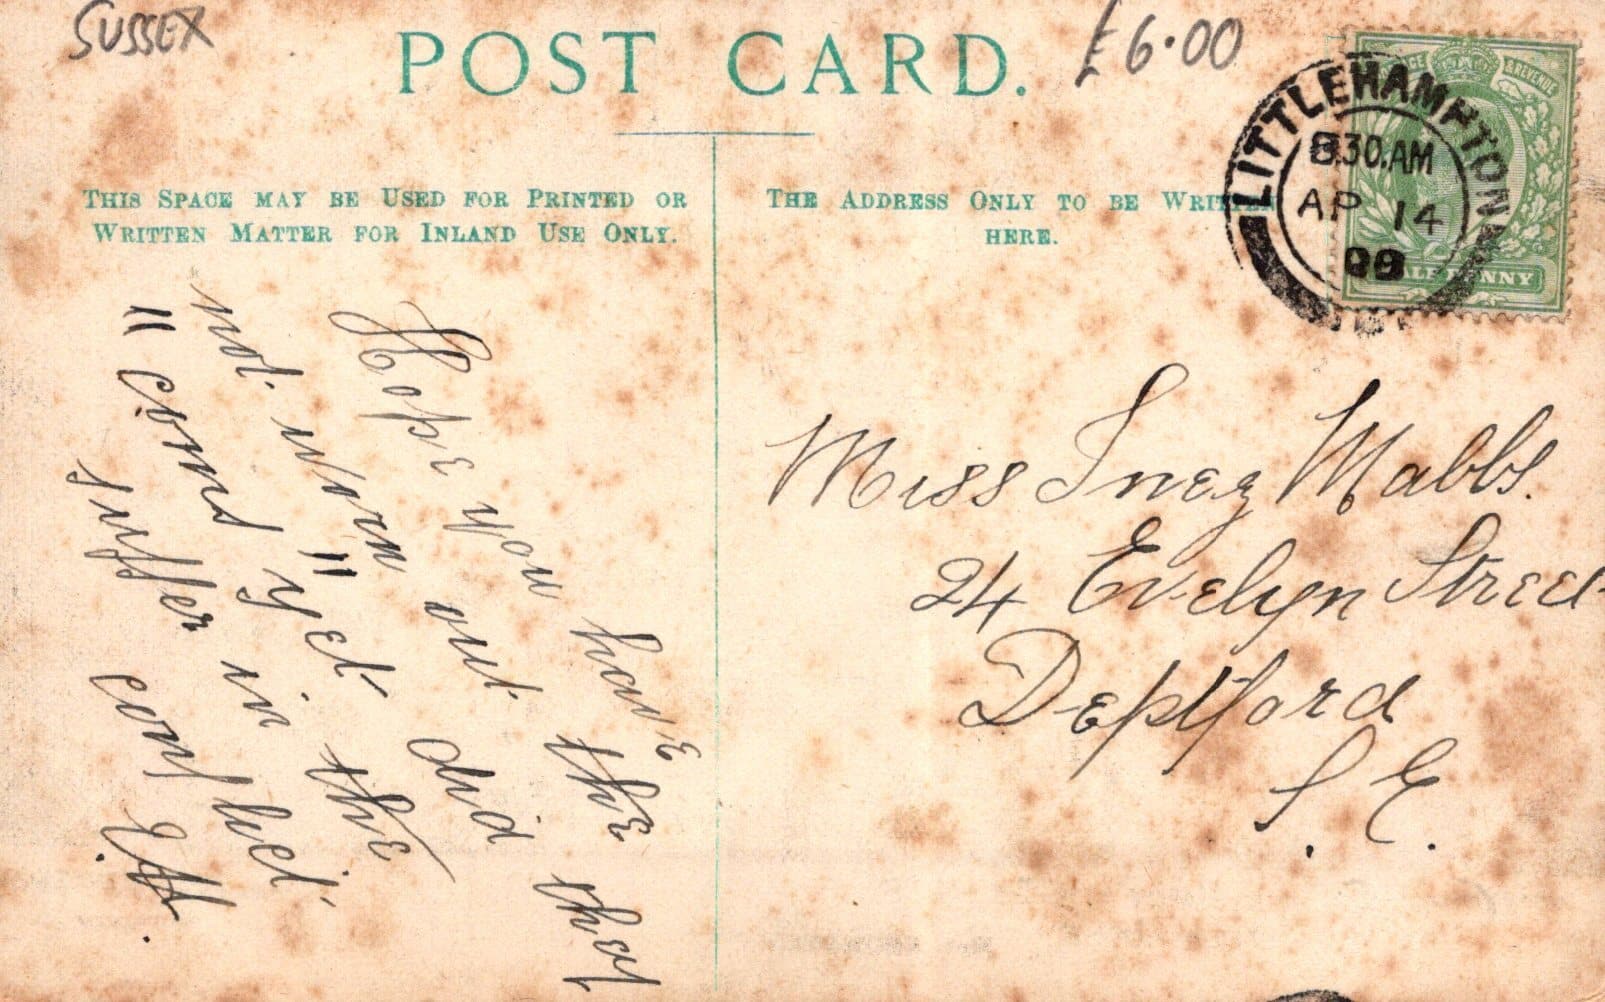 SUSSEX
£6.00
POST CARD.
THIS SPACE MAY BE USED FOR PRINTED OR
WRITTEN MATTER FOR INLAND USE ONLY.
THE ADDRESS ONLY TO BE WRITTEN
HERE.
LITTLEHAMPTON
8.30.AM
AP 14
& REVENUE
HALFPENNY
Hope you have
not worn out the
"Corns" yet did that
suffer in the
conflict
Miss Inez Mabbs.
24 Evelyn Street
Deptford
S.E.